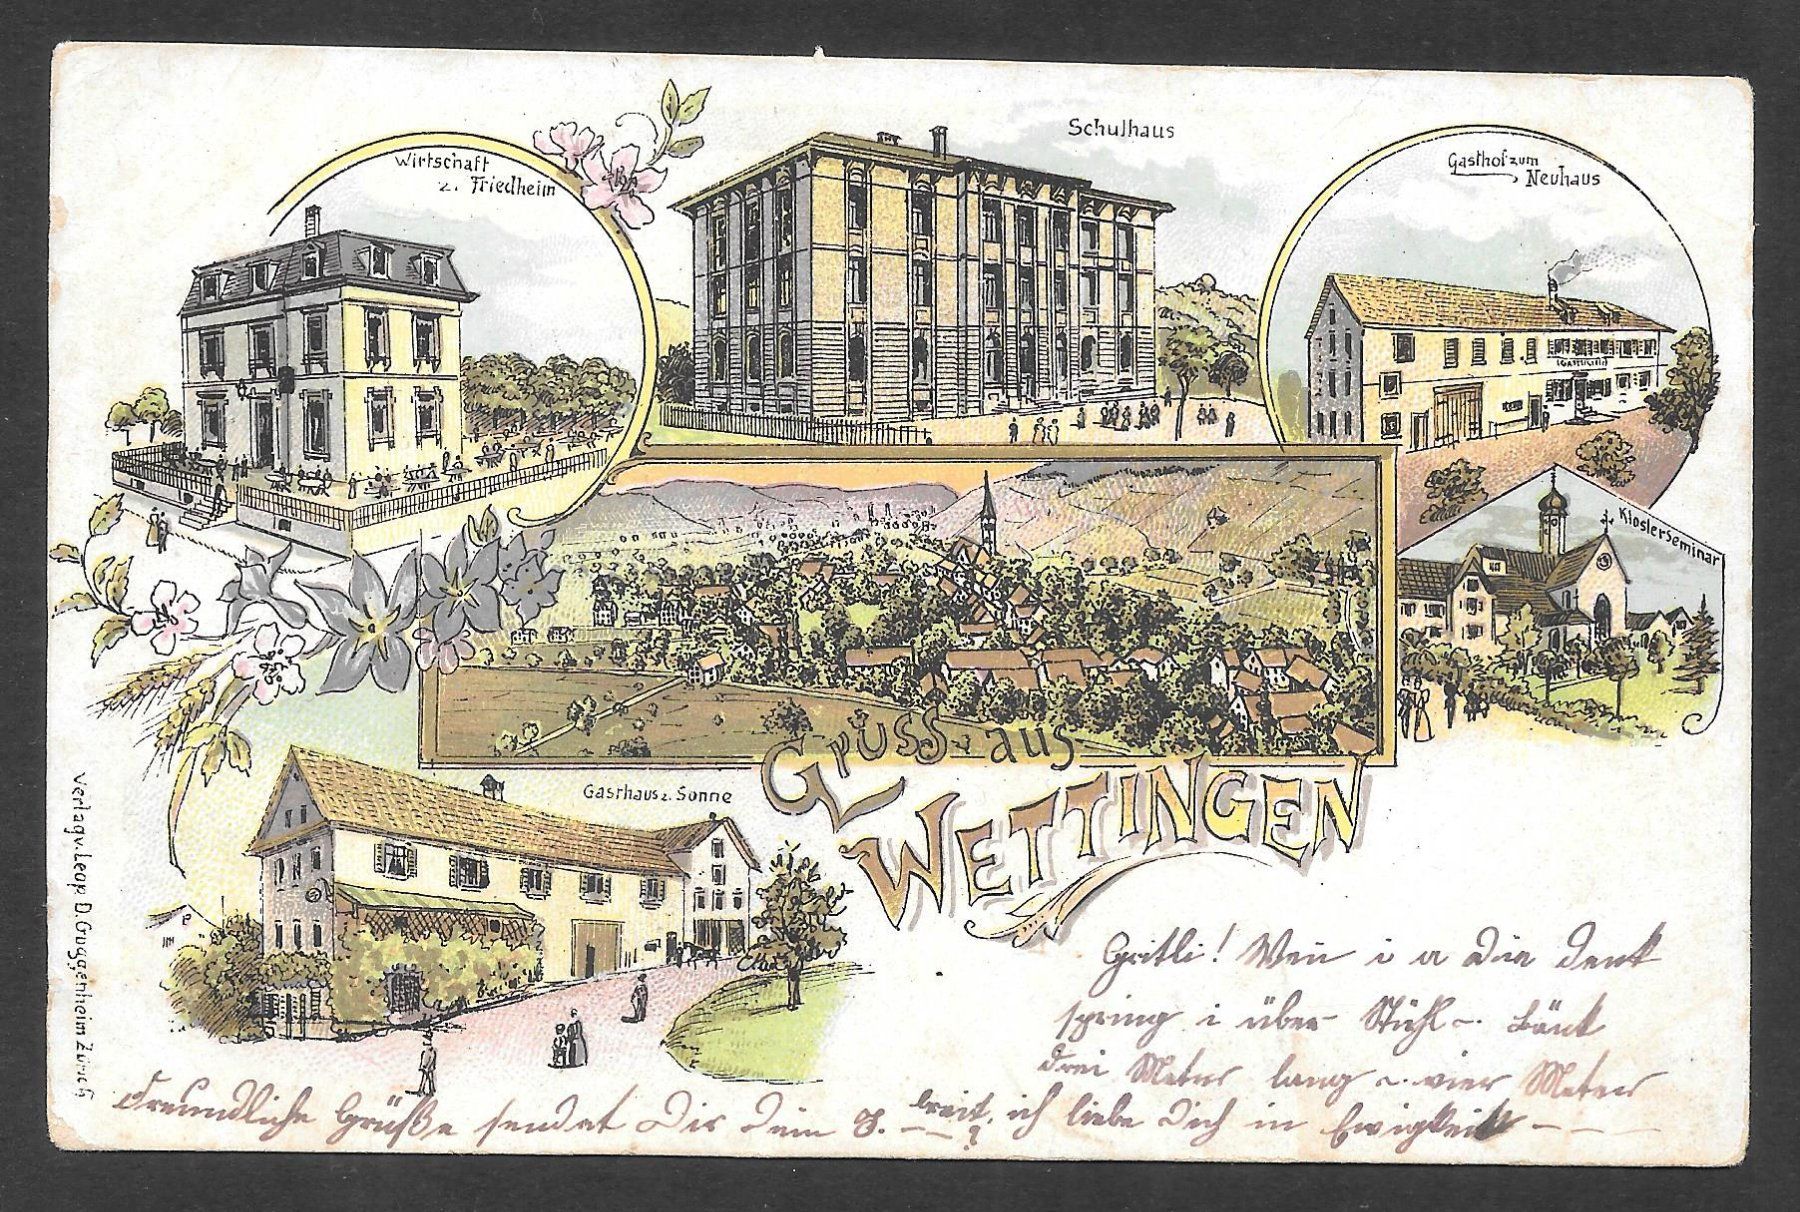 Wirtschaft
z. Friedheim
Schulhaus
Gasthof zum
Neuhaus
Klosterseminar
Gasthaus z. Sonne
Gruss aus
WETTINGEN
Verlag v. Leop. D. Guggenheim Zürich
Gritli! Wen i a Dia denk
spring i über Stühl u. Bänk
drei Meter lang u. vier Meter
breit. ich liebe Dich in Ewigkeit
Freundliche Grüße sendet Dir Dein